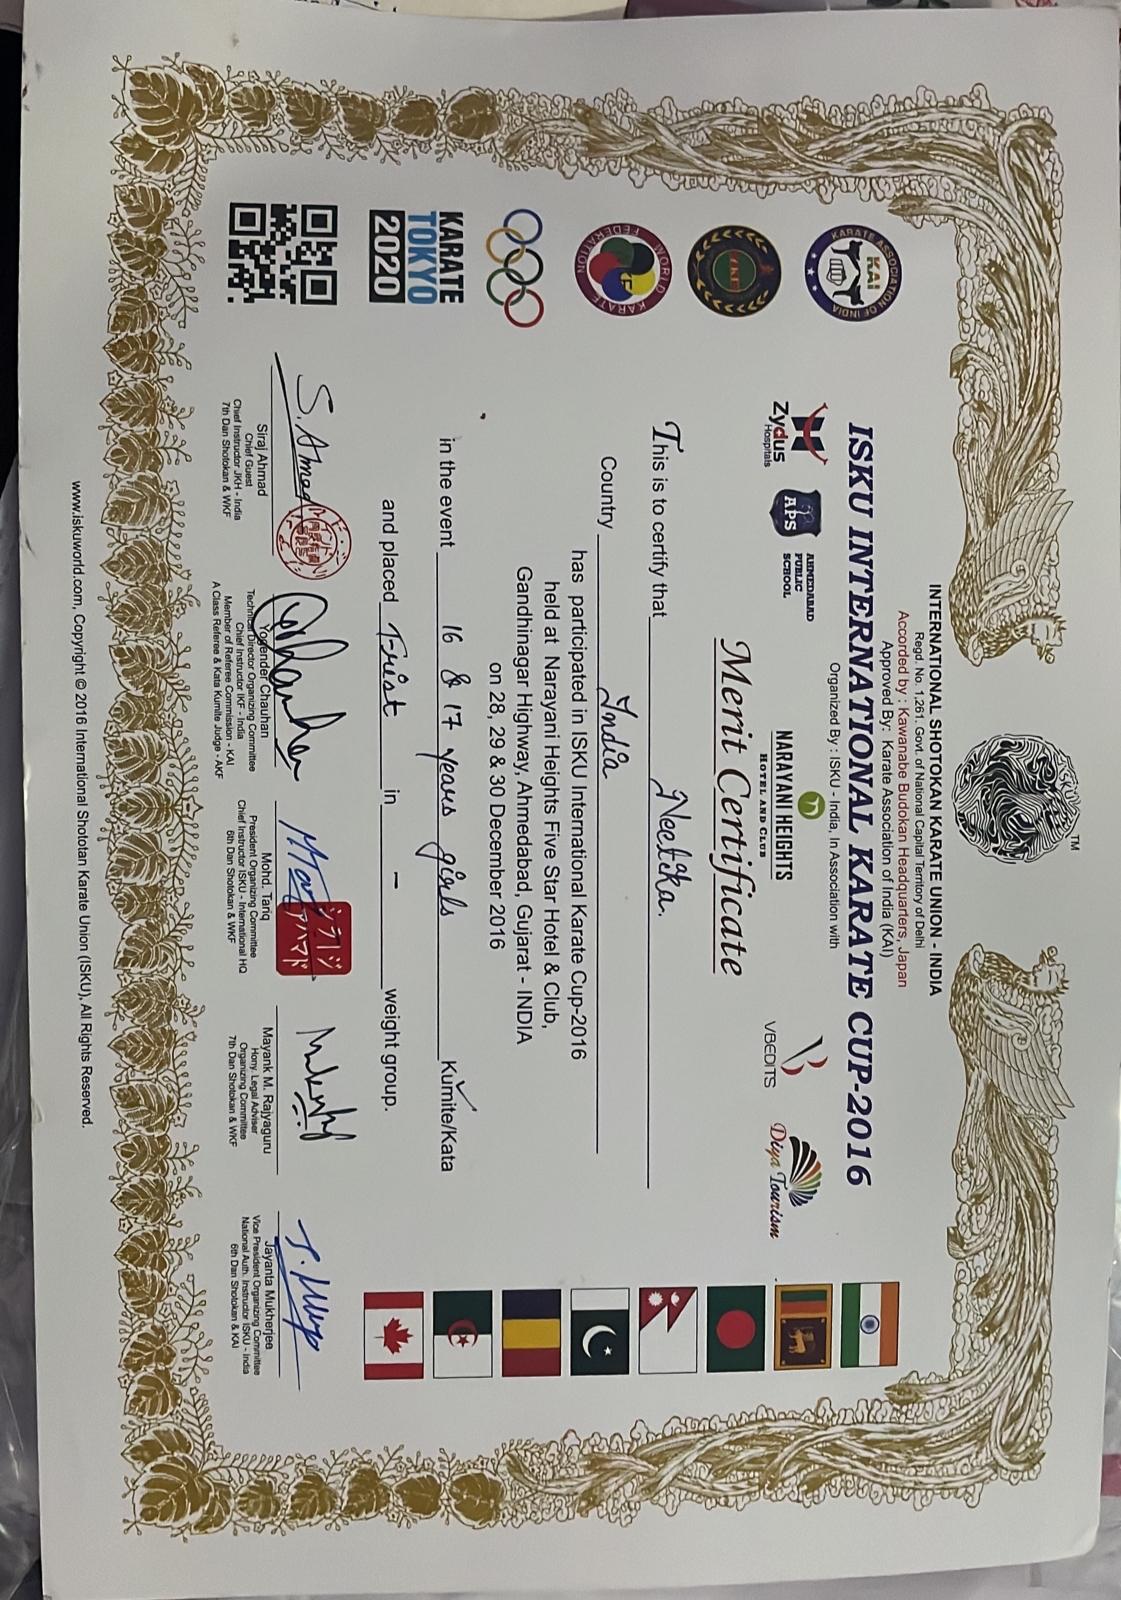 ISKU
TM
INTERNATIONAL SHOTOKAN KARATE UNION - INDIA
Regd. No. 1,261. Govt. of National Capital Territory of Delhi
Accorded by : Kawanabe Budokan Headquarters, Japan
Approved By: Karate Association of India (KAI)
ISKU INTERNATIONAL KARATE CUP-2016
Organized By : ISKU - India, In Association with
KARATE ASSOCIATION OF INDIA
KAI
Zydus
Hospitals
APS
AHMEDABAD
PUBLIC
SCHOOL
NARAYANI HEIGHTS
HOTEL AND CLUB
VBEDITS
Diya Tourism
Merit Certificate
WORLD KARATE FEDERATION
This is to certify that Neetika.
Country India
has participated in ISKU International Karate Cup-2016
held at Narayani Heights Five Star Hotel & Club,
Gandhinagar Highway, Ahmedabad, Gujarat - INDIA
on 28, 29 & 30 December 2016
in the event 16 & 17 years girls Kumite/Kata
and placed Frist in - weight group.
KARATE
TOKYO
2020
S. Ahmad
シラージ
アハマド
Siraj Ahmad
Chief Guest
Chief Instructor JKH - India
7th Dan Shotokan & WKF
Yogender Chauhan
Technical Director Organizing Committee
Chief Instructor IKF - India
Member of Referee Commission - KAI
A Class Referee & Kata Kumite Judge - AKF
Mohd. Tariq
President Organizing Committee
Chief Instructor ISKU - International HQ
6th Dan Shotokan & WKF
Mayank M. Rajyaguru
Hony. Legal Adviser
Organizing Committee
7th Dan Shotokan & WKF
Jayanta Mukherjee
Vice President Organizing Committee
National Auth. Instructor ISKU - India
6th Dan Shotokan & KAI
www.iskuworld.com, Copyright © 2016 International Shototan Karate Union (ISKU), All Rights Reserved.